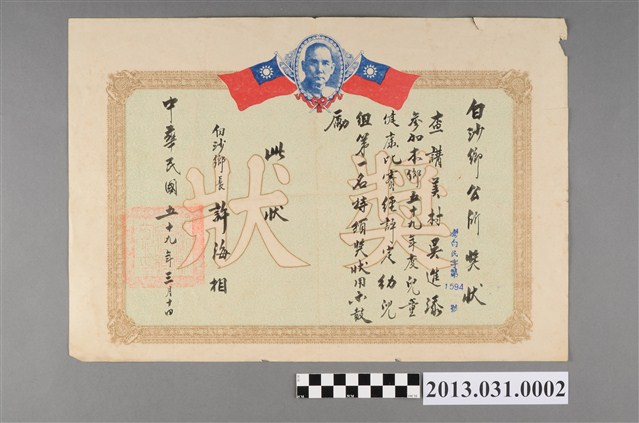 白沙鄉公所獎狀
澎白民字第1594號
查講美村吳進添
參加本鄉五十九年度兒童
健康比賽經評定幼兒
組第一名特頒獎狀用示鼓
勵
此狀
白沙鄉長 許海相
中華民國五十九年三月十四
獎狀
2013.031.0002